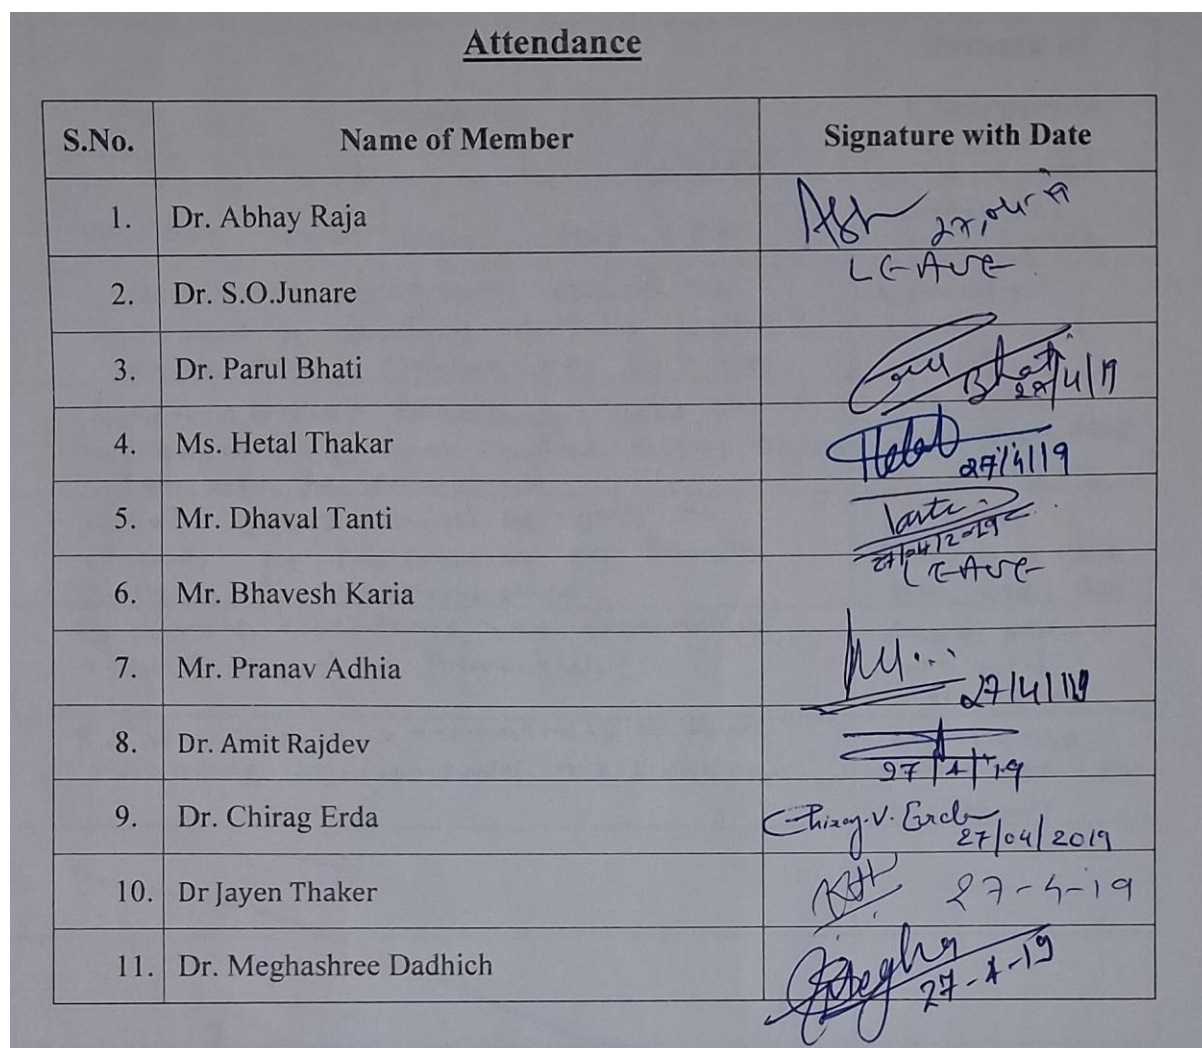 Attendance
S.No. Name of Member Signature with Date
1. Dr. Abhay Raja 27,04-19
2. Dr. S.O.Junare LEAVE
3. Dr. Parul Bhati Bhati 27/4/19
4. Ms. Hetal Thakar Hetal 27/4/19
5. Mr. Dhaval Tanti Tanti 27/04/2019
6. Mr. Bhavesh Karia LEAVE
7. Mr. Pranav Adhia 27/4/19
8. Dr. Amit Rajdev 27/4/19
9. Dr. Chirag Erda Chirag.V.Erda 27/04/2019
10. Dr Jayen Thaker 27-4-19
11. Dr. Meghashree Dadhich Megha 27-4-19